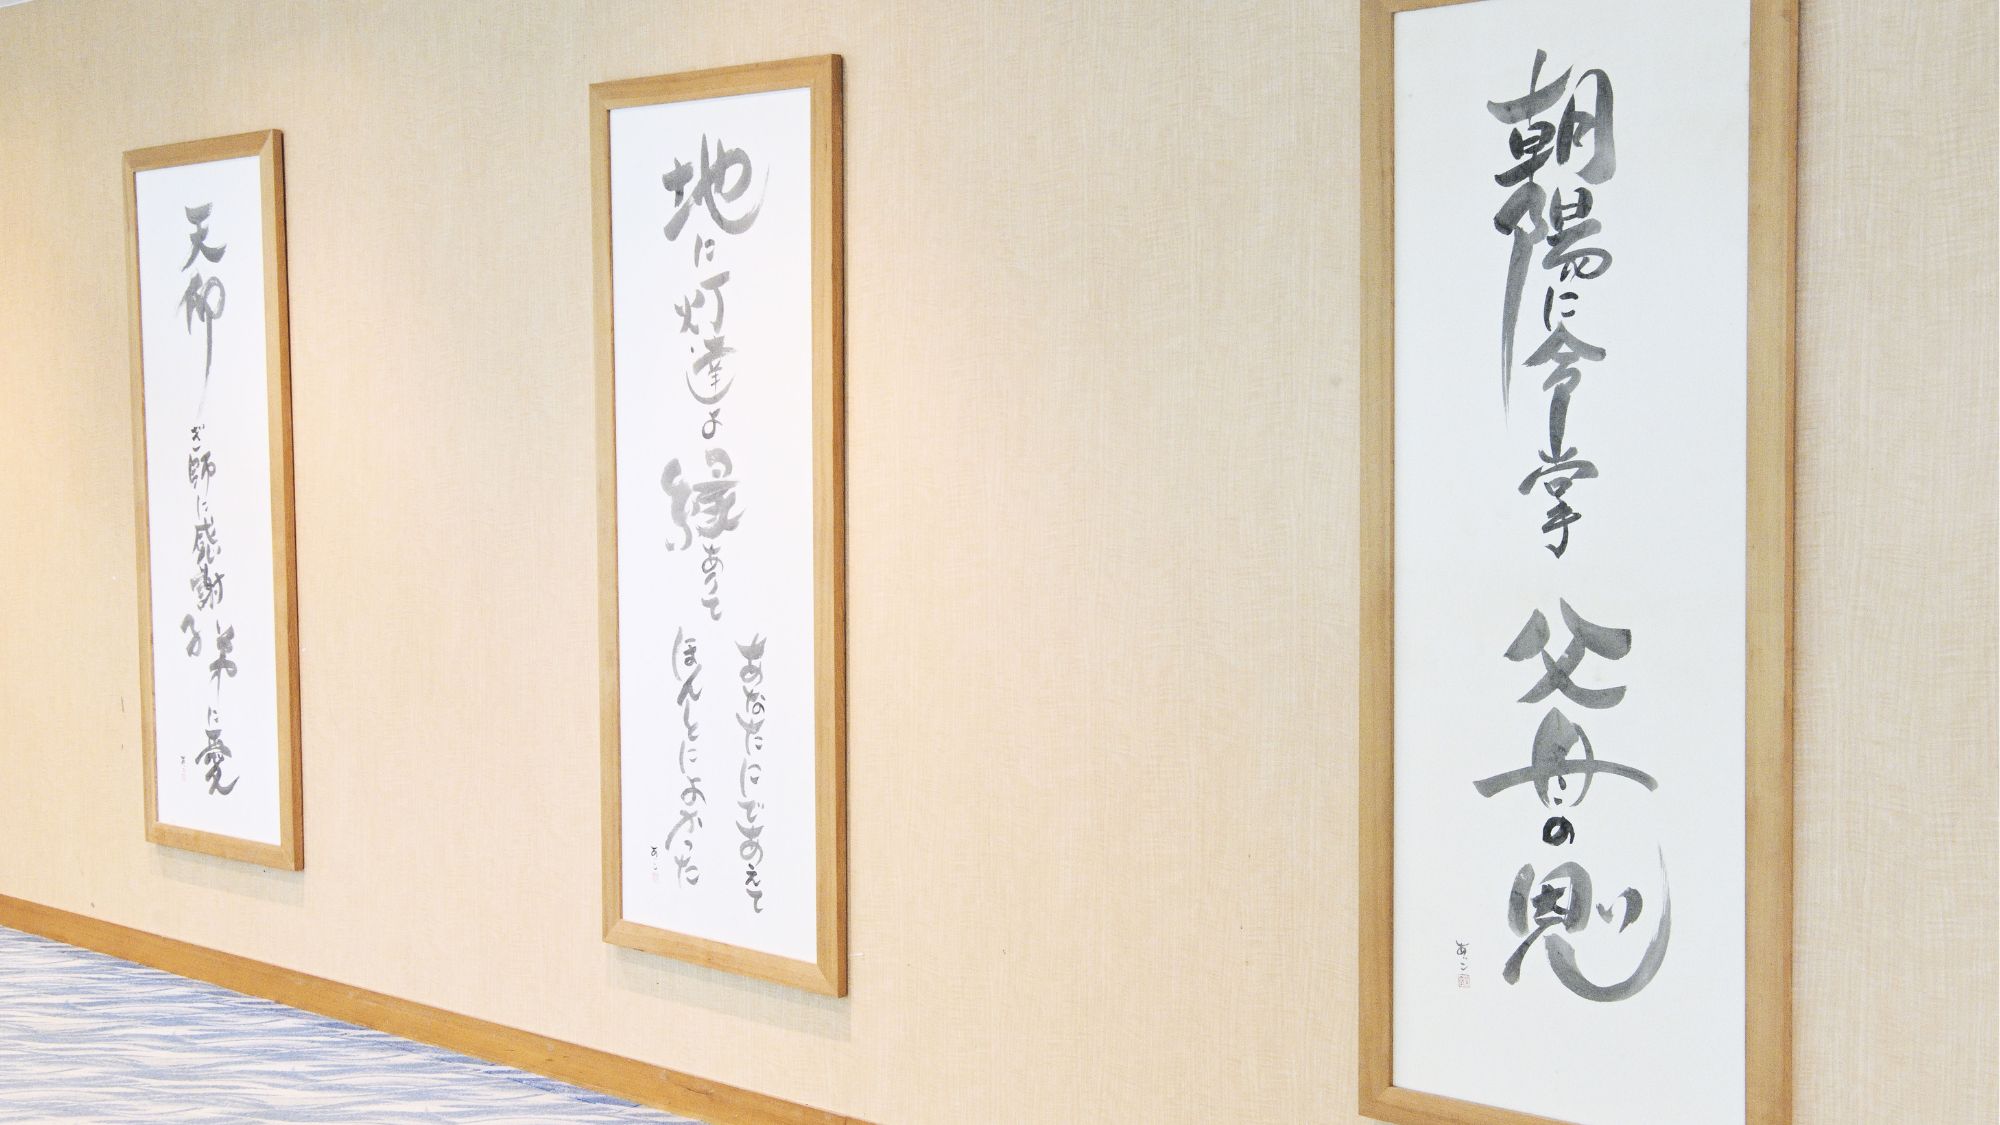 朝陽に合掌 父母の恩
地に灯達よ縁ありて
あなたにであえて
ほんとによかった
天仰ぎ師に感謝
弟子に愛